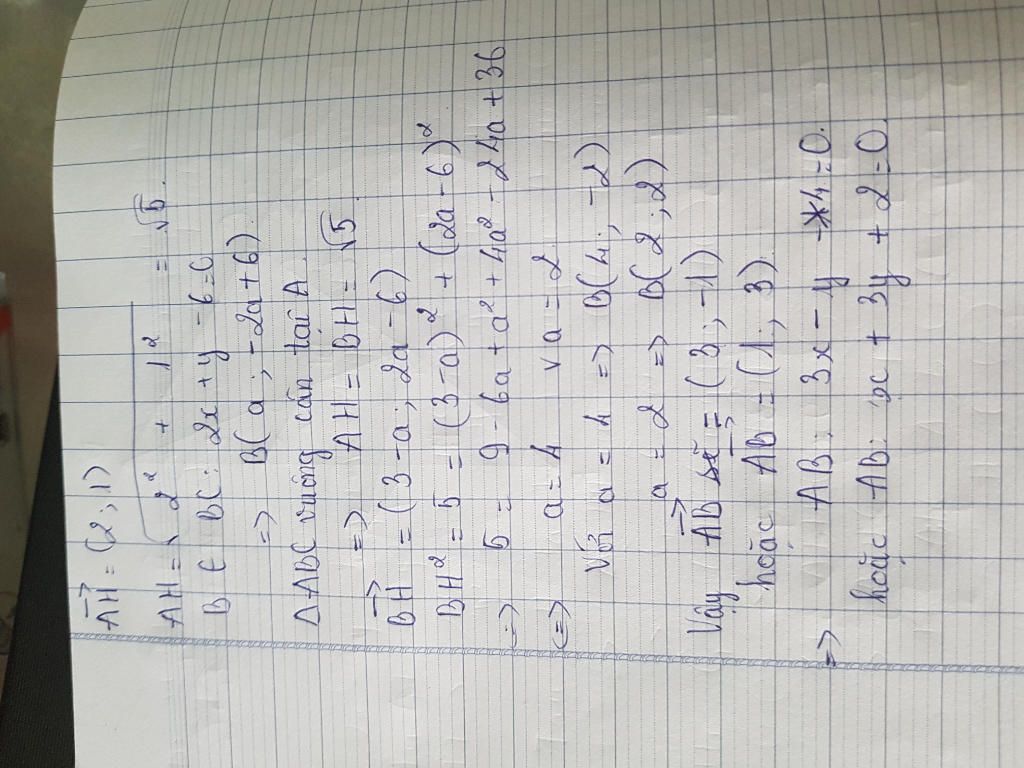 →AH = (2; 1)
AH = √(2² + 1²) = √5.
B ∈ BC: 2x + y - 6 = 0
=> B(a; -2a + 6)
ΔABC vuông cân tại A.
=> AH = BH = √5
→BH = (3 - a; 2a - 6)
BH² = 5 = (3 - a)² + (2a - 6)²
=> 5 = 9 - 6a + a² + 4a² - 24a + 36
<=> a = 4 v a = 2
Với a = 4 => B(4; -2)
a = 2 => B(2; 2)
Vậy →AB = (3; -1)
hoặc →AB = (1; 3)
=> AB: 3x - y - 4 = 0.
hoặc AB: x + 3y + 2 = 0.